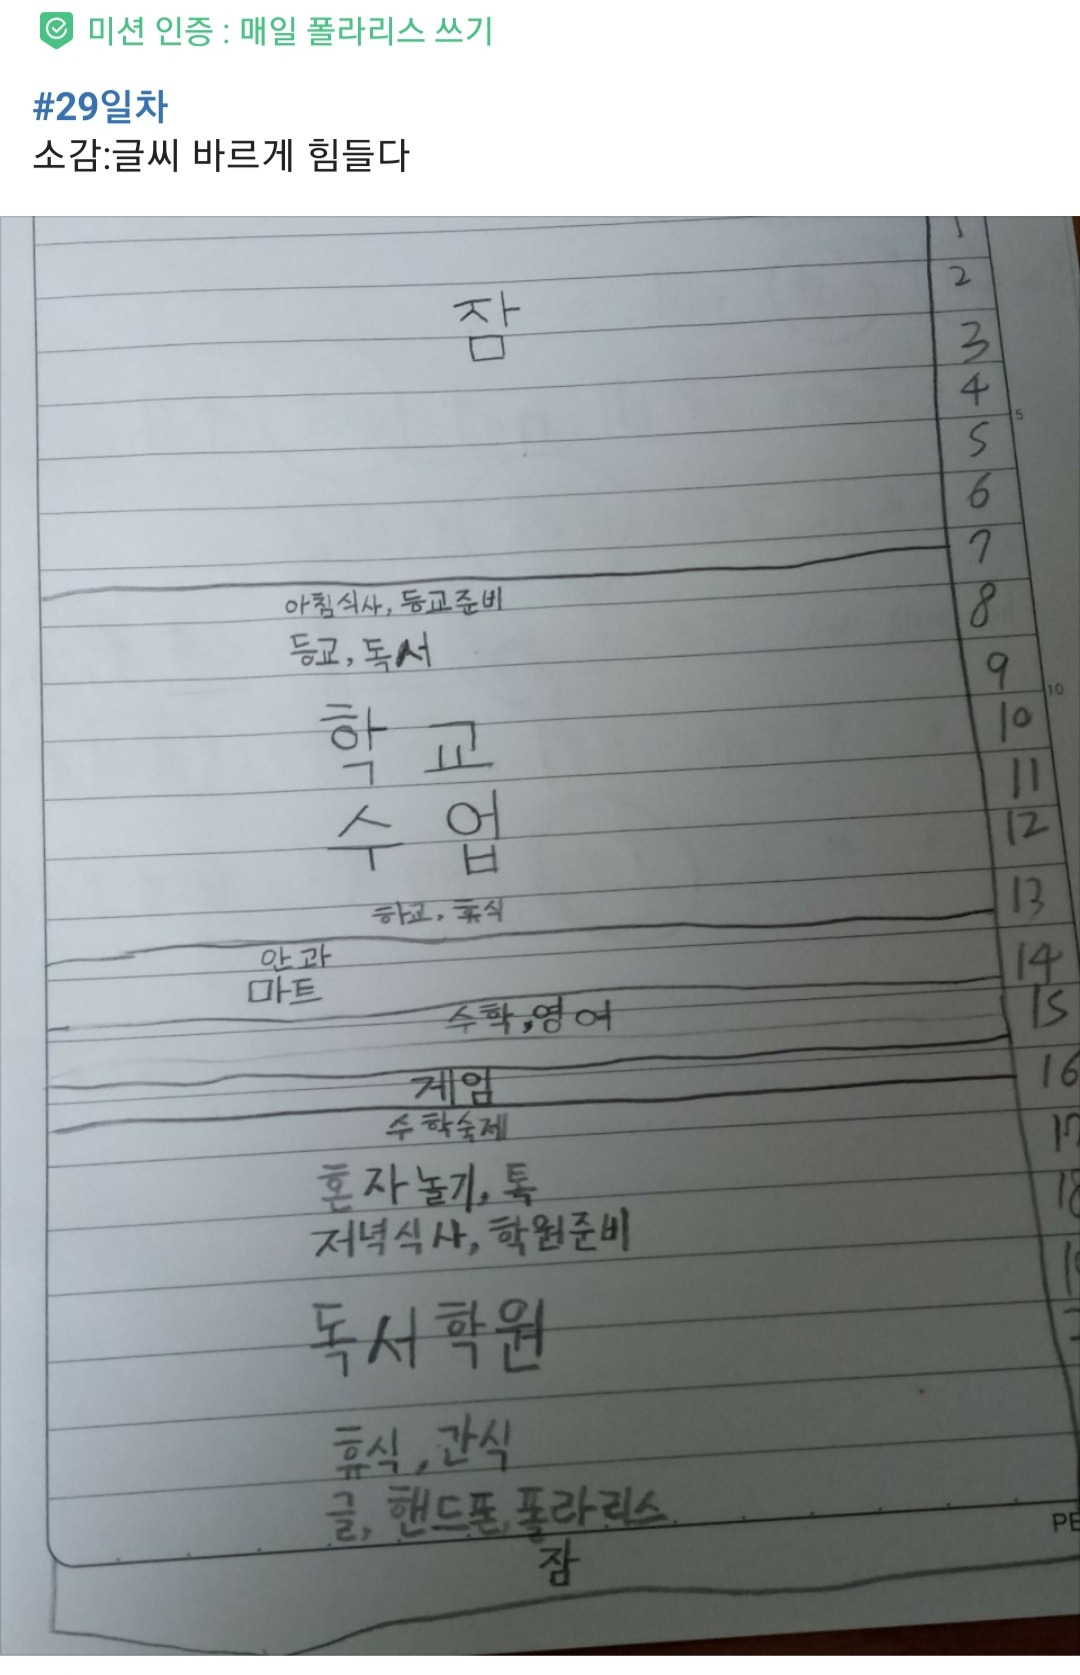 미션 인증 : 매일 폴라리스 쓰기
#29일차
소감:글씨 바르게 힘들다
1
2
잠
3
4
5
5
6
7
아침식사, 등교준비
8
등교, 독서
9
10
학교
10
11
수업
12
하교, 휴식
13
안과
14
마트
수학, 영어
15
게임
16
수학숙제
17
혼자놀기, 톡
18
저녁식사, 학원준비
독서학원
휴식, 간식
글, 핸드폰, 폴라리스
PE
잠